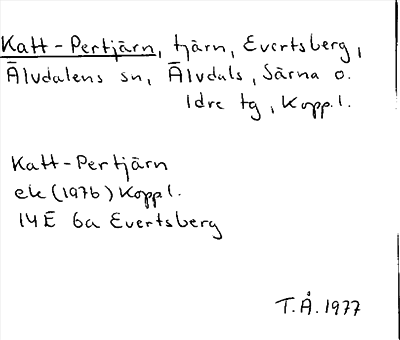 Katt-Pertjärn, tjärn, Evertsberg,
Älvdalens sn, Älvdals, Särna o.
Idre tg, Kopp.l.
Katt-Pertjärn
ek (1976) Koppl.
14E 6a Evertsberg
T.Å. 1977